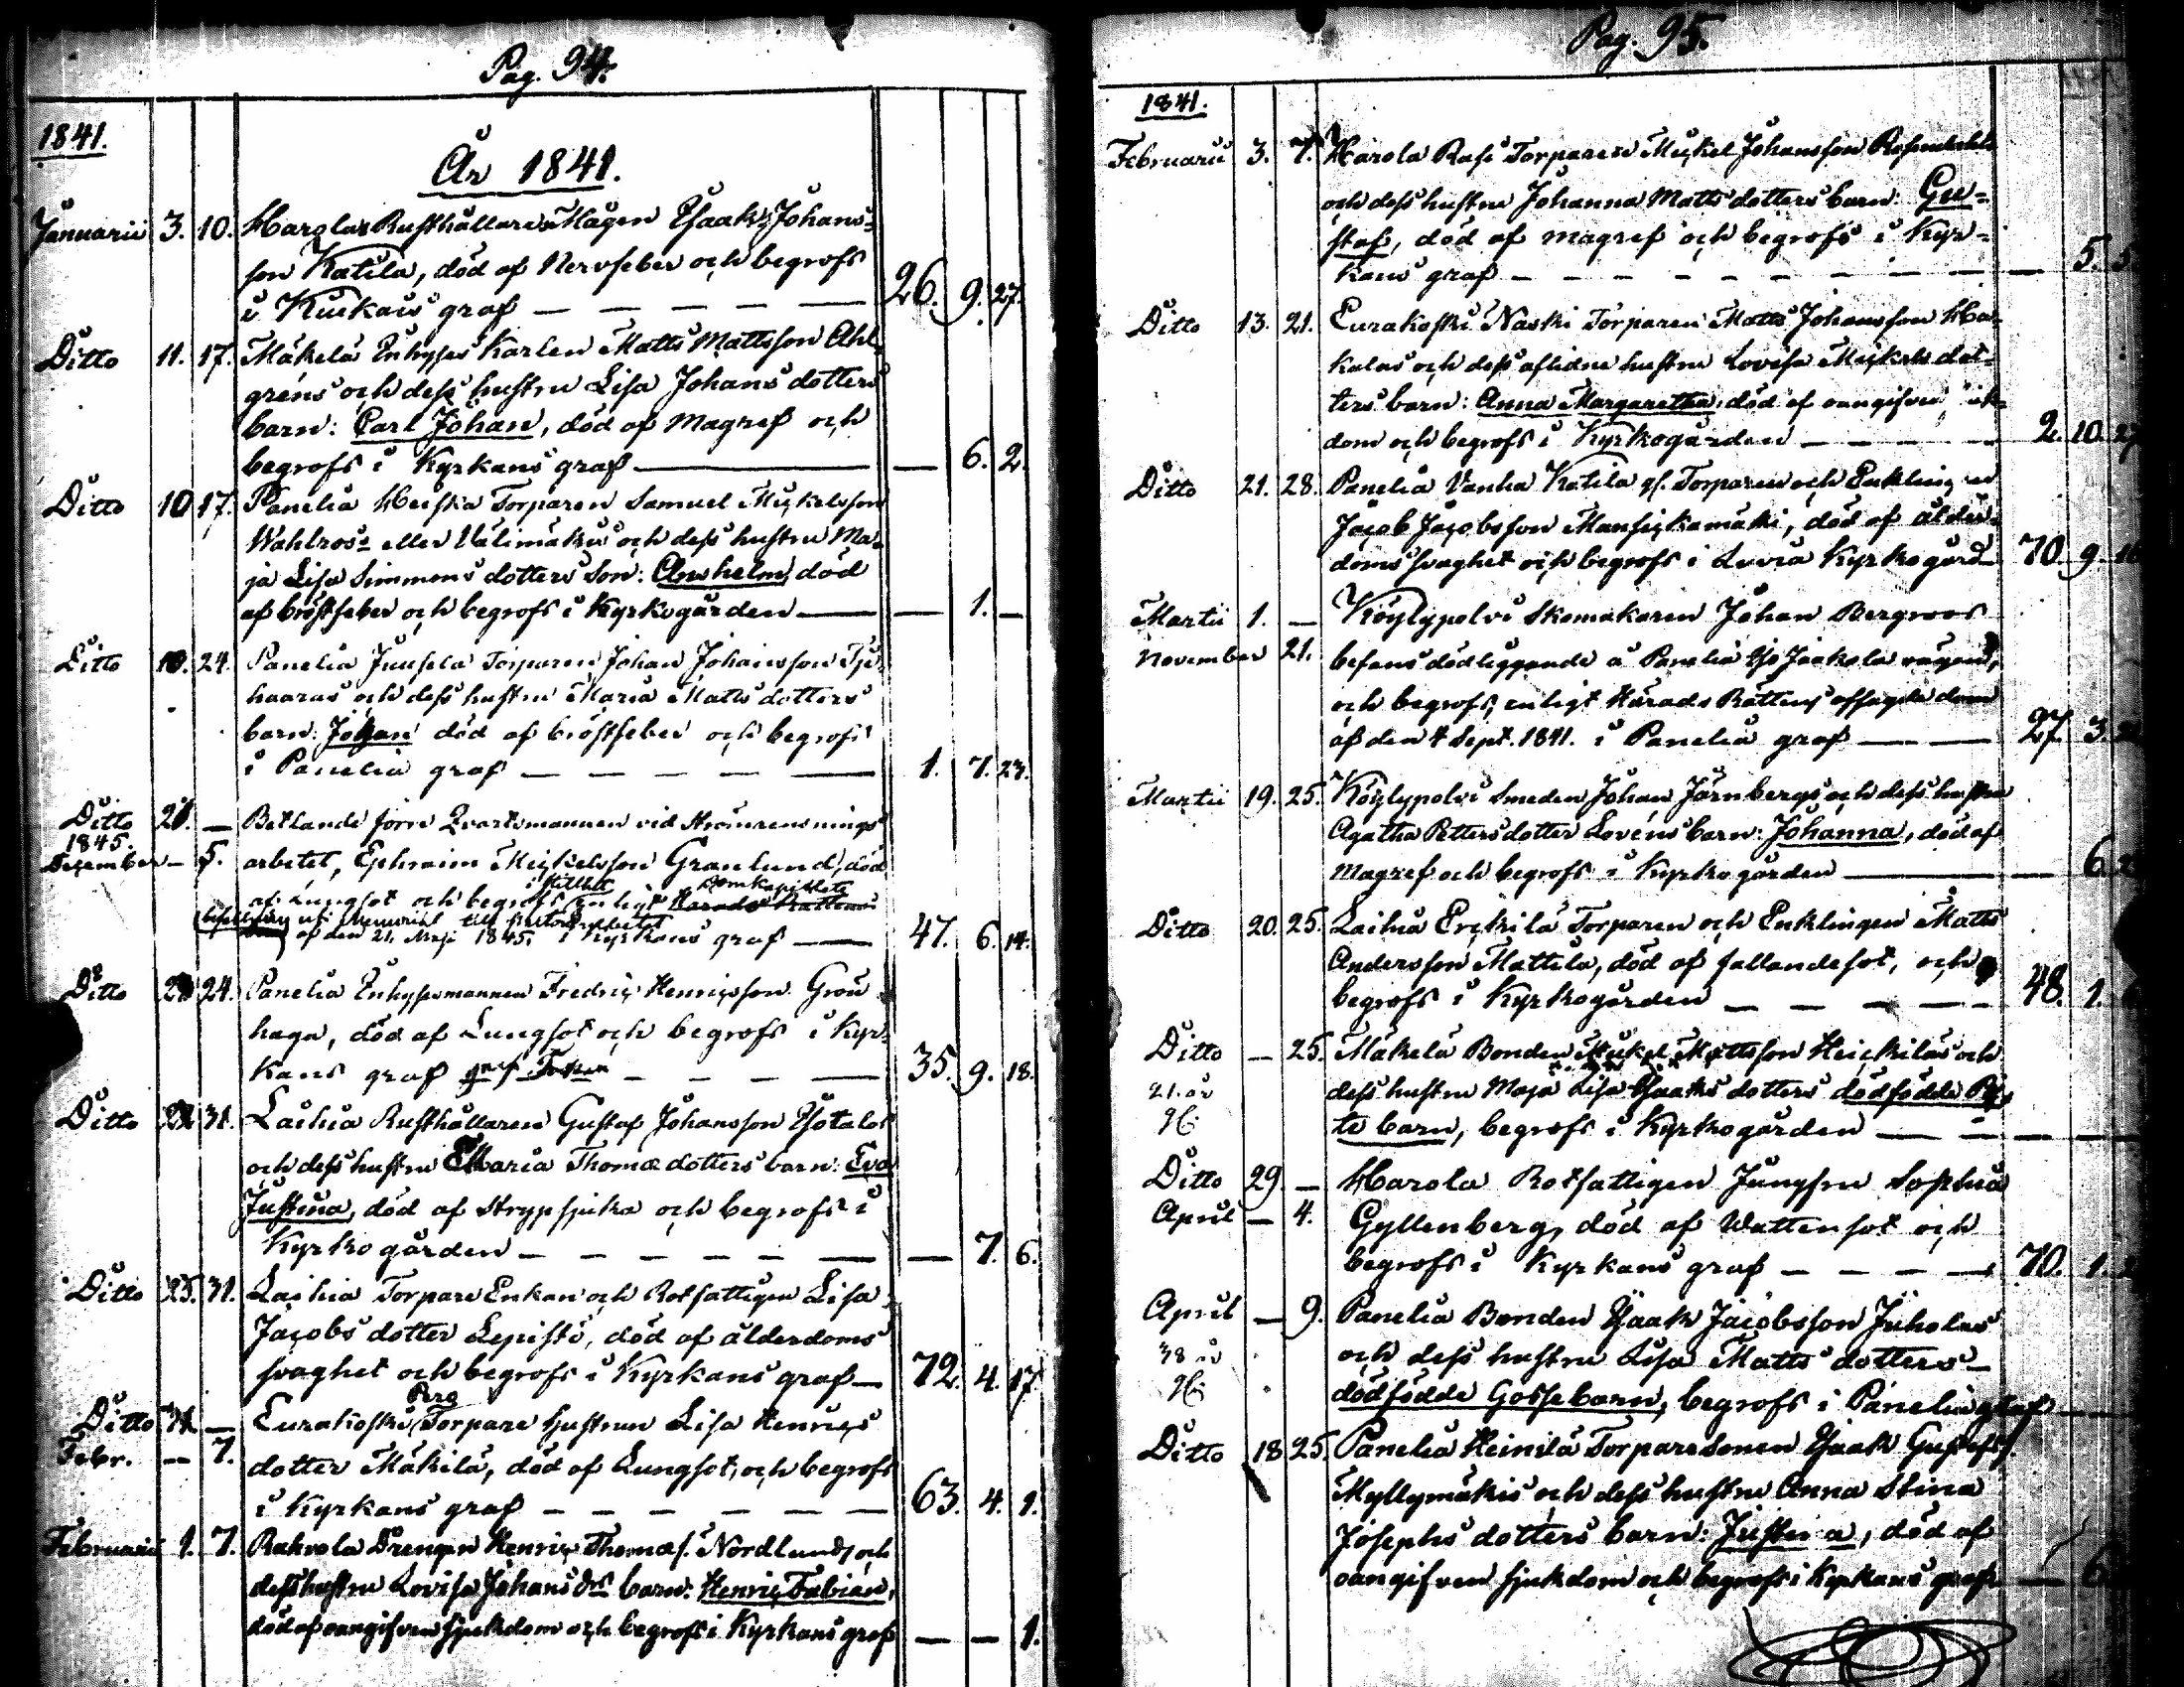 Pag. 94.
1841.
År 1841.
Januarii 3. 10. Harola Rusthållare Mågen Isaak Johans-
son Katila, död af Nervfeber och begrofs
i Kuckais graf — — — — — 26. 9. 27.
Ditto 11. 17. Mäkelä Inhyses Karlen Matts Mattsson Ahl-
gréns och dess hustru Lisa Johans dotters
barn: Carl Johan, död af Magref och
begrofs i Kyrkans graf — — 6. 2.
Ditto 10 17. Panelia Heiska Torparen Samuel Mickelsson
Wahlros- eller Välimäkis och dess hustru Ma-
ja Lisa Simmons dotters Son: Anshelm, död
af bröstfeber och begrofs i Kyrkogården — — 1. —
Ditto 10. 24. Panelia Juusela Torparen Johan Johansson
haaras och dess hustru Maria Matts dotters
barn: Johan död af bröstfeber och begrofs
i Panelia graf — — — — — 1. 7. 23.
Ditto 21. — Betlande förre Qvartsmannen vid Strömrensnings
1845.
December — 5. arbetet, Ephraim Mickelsson Granlund, död
i stillhet Domkapitlets
af Lungsot och begrofs enligt Härads Rättens
befallning uti Memorial till Pastors embetet
af den 21. Maji 1845. i Kyrkans graf — 47. 6. 14.
Ditto 24. Panelia Inhysesmannen Fredric Henricsson Grön
haga, död af Lungsot och begrofs i Kyr-
kans graf — — — 35. 9. 18.
Ditto 31. Laihia Rusthållaren Gustaf Johansson Isotalos
och dess hustru Maria Thomæ dotters barn: Eva
Justina, död af Strypsjuka och begrofs i
Kyrkogården — — — — — — — 7. 6.
Ditto 25. 31. Laihia Torpare Enkan och Rotfattigen Lisa
Jacobs dotter Lepistö, död af ålderdoms
svaghet och begrofs i Kyrkans graf — 72. 4. 17.
Pere
Ditto — Eurakoski Torpare hustrun Lisa Henrics
Febr. — 7. dotter Mäkilä, död af Lungsot, och begrofs
i Kyrkans graf — — — — — — 63. 4. 1.
Februarii 1. 7. Rahvola Drengen Henric Thomæs. Nordlunds och
dess hustru Lovisa Johans drs barn: Henric Fabian,
död af oangifven sjukdom och begrofs i Kyrkans graf — — 1.
Pag. 95.
1841.
Februarii 3. 7. Harola Rasi Torparen Mickel Johansson
och dess hustru Johanna Matts dotters barn: Gu-
staf, död af magref och begrofs i Kyr-
kans graf — — — — — — — — 5.
Ditto 13. 21. Eurakoski Naski Torparen Matts Johansson Ha-
kalas och dess aflidne hustru Lovisa Mickels dot-
ters barn: Anna Margaretha, död af oangifven sjuk-
dom och begrofs i Kyrkogården — — — — 2. 10.
Ditto 21. 28. Panelia Vanha Katila gl. Torparen och Enklingen
Jacob Jacobsson Mansickamäki, död af ålder-
doms svaghet och begrofs i Luvia Kyrkogård 70. 9.
Martii 1. — Köylypolvi Skomakaren Johan Bergroos
November 21. befans dödliggande å Panelia Iso Jaakola vägen,
och begrofs, enligt Härads Rättens afsagde dom
af den 4 Sept. 1841. i Panelia graf — — 27. 3.
Martii 19. 25. Köylypolvi Smeden Johan Järnbergs och dess hustru
Agatha Pettersdotter Lovéns barn: Johanna, död af
Magref och begrofs i Kyrkogården — — 6.
Ditto 20. 25. Laihia Erckilä Torparen och Enklingen Matts
Andersson Mattila, död af fallandesot, och
begrofs i Kyrkogården — — — — — 48. 1.
Ditto — 25. Mäkelä Bonden Mickel Mattsson Heickiläs och
21. år dess hustru Maja Lisa Isaaks dotters dödfödde
gl: te barn, begrofs i Kyrkogården — — — —
Ditto 29. — Harola Rotfattigen Jungfru Sophia
April — 4. Gyllenberg, död af Wattensot och
begrofs i Kyrkans graf — — — — 70. 1.
April — 9. Panelia Bonden Isaak Jacobsson Juholas
38 år och dess hustru Lisa Matts dotters
gl: dödfödde Gossebarn, begrofs i Panelia graf
Ditto 18 25. Panelia Heinilä Torparesonen Isaak Gustafs.
Myllymäkis och dess hustru Anna Stina
Josephs dotters barn: Justina, död af
oangifven sjukdom och begrofs i Kyrkans graf — 6